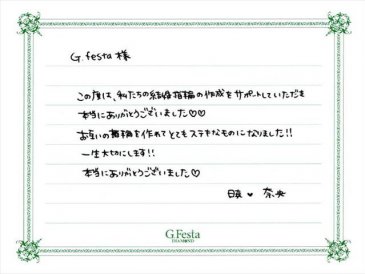 G.festa 様
この度は、私たちの結婚指輪の作成をサポートしていただき
本当にありがとうございました♡♡
お互いの指輪を作れてとてもステキなものになりました!!
一生大切にします!!
本当にありがとうございました♡
♥ 奈央
G.Festa
DIAMOND